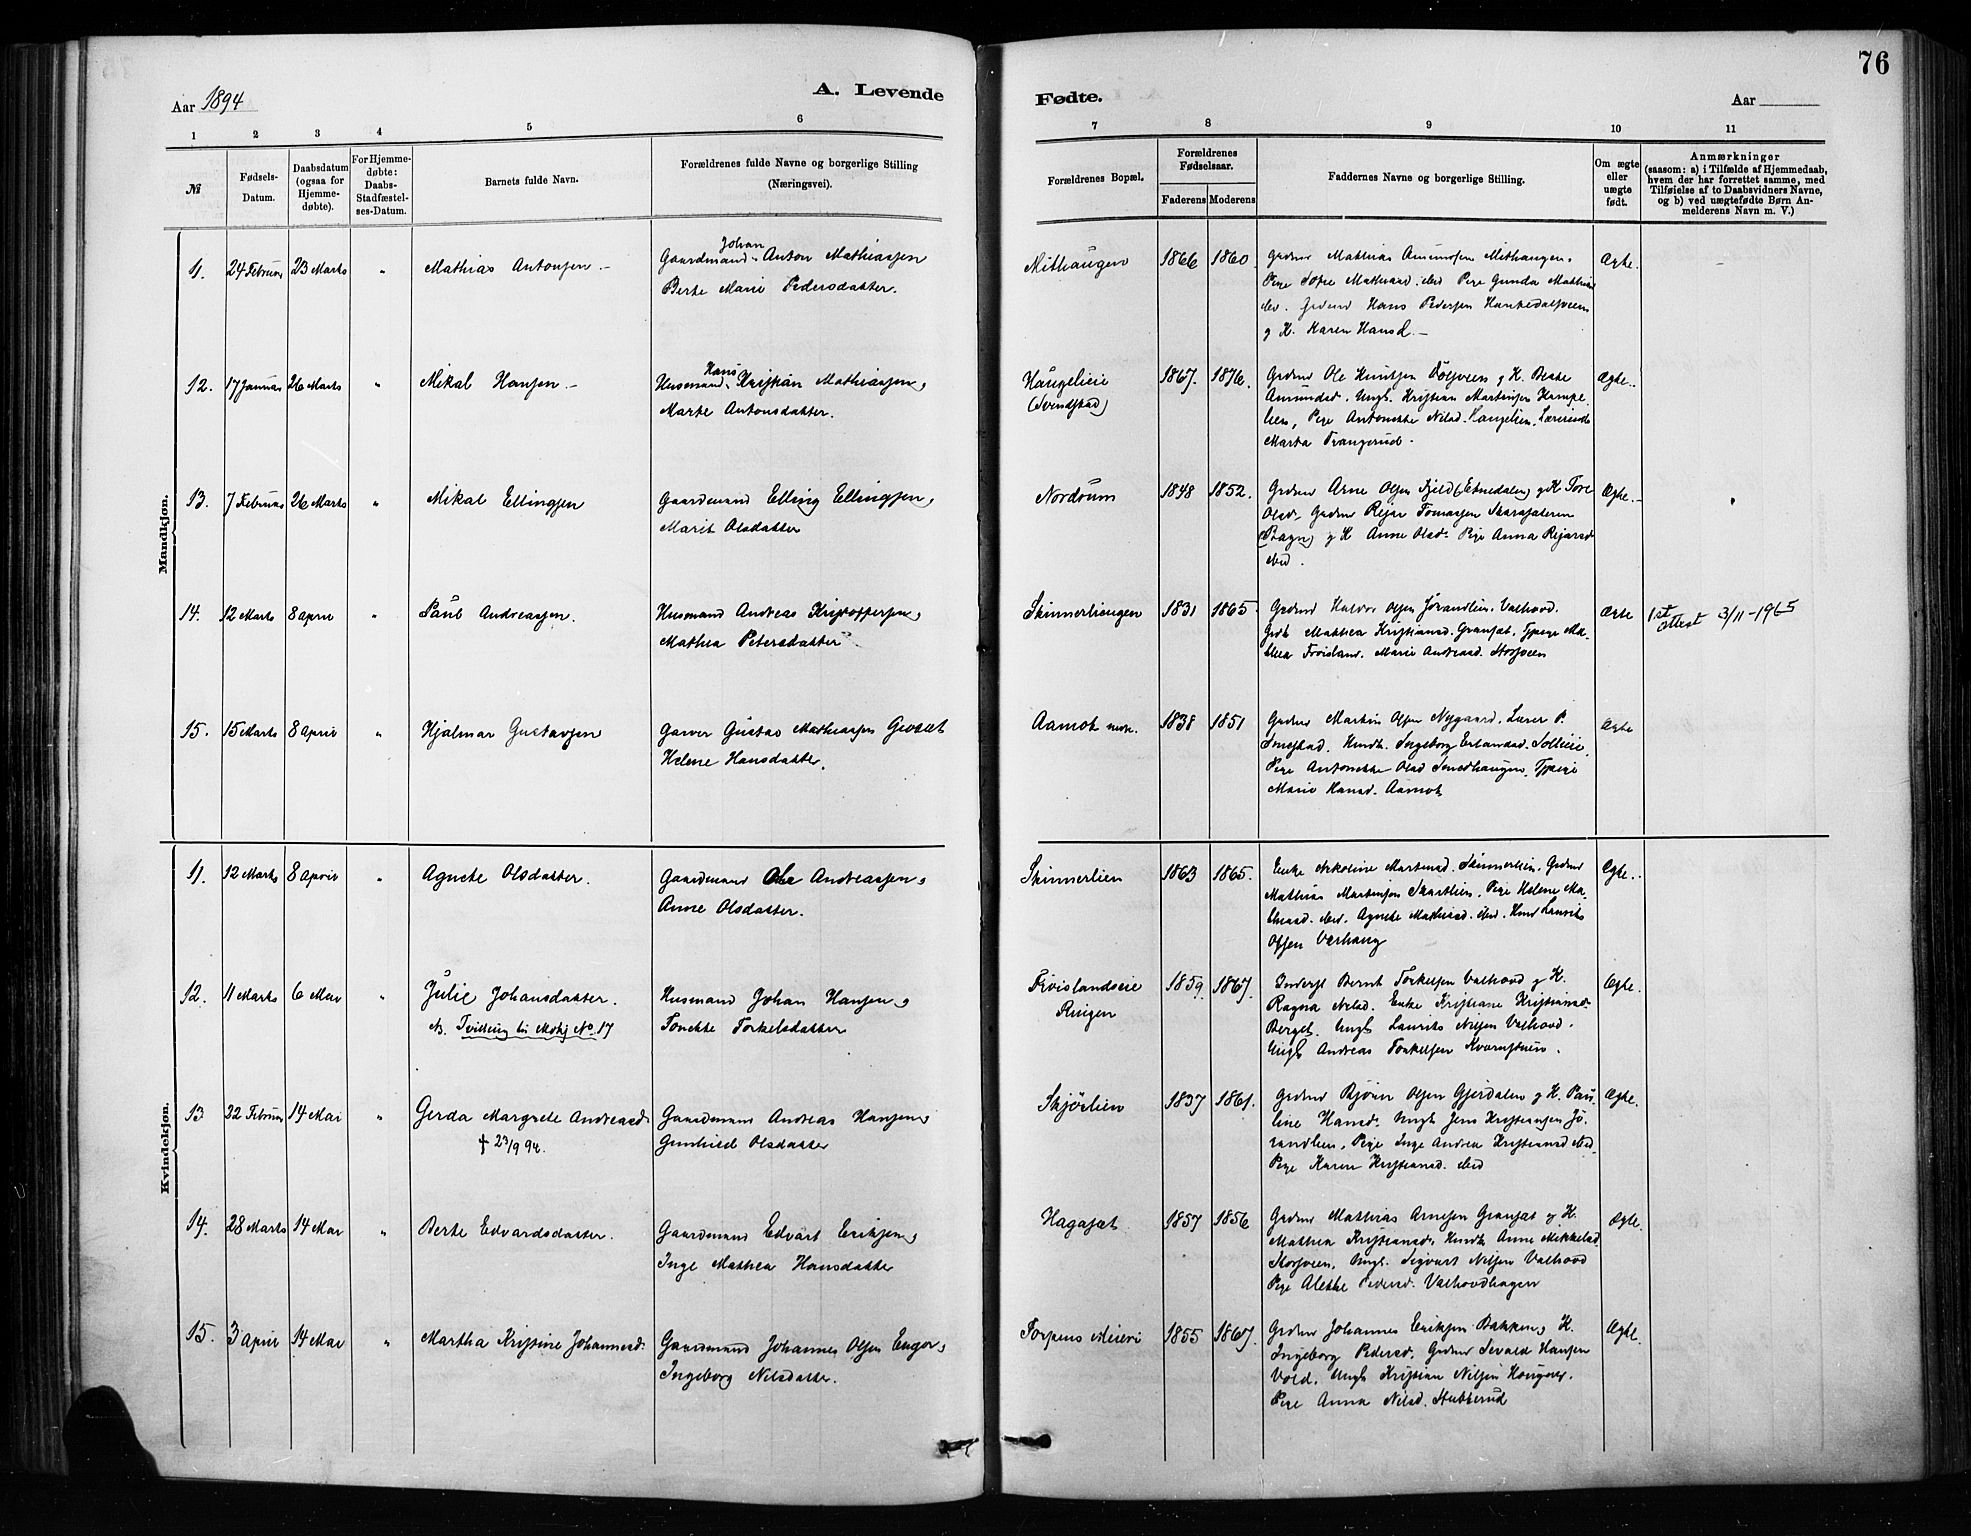 76
Aar 1894
A. Levende
Fødte.
Aar
1
2
3
4
5
6
7
8
9
10
11
№
Fødsels-
Datum.
Daabsdatum
(ogsaa for
Hjemme-
døbte).
For Hjemme-
døbte:
Daabs-
Stadfæstel-
ses-Datum.
Barnets fulde Navn.
Forældrenes fulde Navne og borgerlige Stilling
(Næringsvei).
Forældrenes Bopæl.
Forældrenes
Fødselsaar.
Faderens
Moderens
Faddernes Navne og borgerlige Stilling.
Om ægte
eller
uægte
født.
Anmærkninger
(saasom: a) i Tilfælde af Hjemmedaab,
hvem der har forrettet samme, med
Tilføielse af to Daabsvidners Navne,
og b) ved uægtefødte Børn An-
melderens Navn m. V.)
Mandkjøn.
11. 24 Februar 23 Marts " Mathias Antonsen
Johan
Gaardmand Anton Mathiassen
Berte Marie Pedersdatter.
Mithaugen 1866 1860.
Grdmd Mathias Amundsen Mithaugen.
Pige Sofie Mathiasd. ibid Pige Gunda Mathiasd
ibd. Grdmd Hans Pedersen
g K. Karen Hansd.
Ægte.
12. 17 Januar 26 Marts " Mikal Hansen
Hans
Husmand Kristian Mathiassen,
Marte Antonsdatter.
Haugelieie
(Svendstad)
1867. 1876.
Grdmd Ole Knutsen g K. Berte
Amundsd. Ungk. Kristian Martinsen
Pige Antonette Nilsd. Haugelien, Lærerinde
Marta Trangerud.
Ægte.
13. 7 Februar 26 Marts " Mikal Ellingsen
Gaardmand Elling Ellingsen,
Marit Olsdatter
Nordrum 1848 1852.
Grdmd Arne Olsen Fjeld (Etnedalen) g K Tore
Olsd. Grdmd Rejar Tomassen
(Bagn) g K Anne Olsd. Pige Anna Rejarsd
ibid.
Ægte.
14. 12 Marts 8 April " Paul Andreassen.
Husmand Andreas Kristoffersen,
Mathea Petersdatter
Skinnerhaugen 1831 1865
Grdmd Halvor Olsen Jørandlien, Valhovd.
Mathea Kristiansd. Granset. Tjpige Ma-
thea Frøisland. Marie Andreasd. Storsveen
Ægte
attest 3/11-1965
15. 15 Marts 8 April " Hjalmar Gustavsen
Garver Gustav Mathiassen
Helene Hansdatter.
Aamot 1838 1851
Grdmd Martin Olsen Nygaard. Lærer P.
Smestad. Ingeborg Erlandsd.
Pige Antonette Olsd Smedhaugen, Tjpige
Marie Hansd. Aamot
Ægte
Kvindekjøn.
11. 12 Marts 8 April " Agnete Olsdatter.
Gaardmand Ole Andreassen,
Anne Olsdatter.
Skinnerlien 1863 1865.
Enke Nikoline Martinsd. Skinnerlien. Grdmd
Mathias Martinsen Skartlien. Pige Helene Ma-
thiasd. ibid. Agnete Mathiasd. ibid. Laurits
Olsen Værhaug
Ægte.
12. 11 Marts 6 Mai " Julie Johansdatter.
NB. Tvilling til Mdkj No. 17
Husmand Johan Hansen,
Tonette Torkelsdatter
Frøislandseie
Ringen
1859. 1867.
Inderst Bernt Torkelsen Valhovd g K.
Ragna Nilsd. Enke Kristiane Kristiansd.
Berget. Ungk Laurits Nilsen Valhovd.
Ungk Andreas Torkelsen
Ægte.
13 22 Februar 14 Mai " Gerda Margrete Andreasd.
† 23/9 94.
Gaardmand Andreas Hansen,
Gunhild Olsdatter
Skjørlien 1837 1861.
Grdmd Bjørn Olsen Gjerdalen g K. Pau-
line Hansd. Ungk Jens Kristiansen Jø-
randlien. Pige Inge Andrea Kristiansd ibid,
Pige Karen Kristiansd. ibid
Ægte.
14. 28 Marts 14 Mai " Berte Edvardsdatter.
Gaardmand Edvart Eriksen,
Inge Mathea Hansdatter
Hagaset 1857 1856
Grdmd Mathias Arnesen Granset og K.
Mathea Kristiansd. Anne Mikkelsd.
Storsveen, Ungk. Sigvart Nilsen Valhovd
Pige Alette Pedersd. Valhovdhagen
Ægte.
15. 3 April 14 Mai " Martha Kristine Johannesd.
Gaardmand Johannes Olsen Enger,
Ingeborg Nilsdatter.
Torpens Meieri 1855 1867.
Grdmd Johannes Eriksen Bakken, K.
Ingeborg Pedersd. Grdmd Sevald Hansen
Vold. Ungk Kristian Nilsen
Pige Anna Nilsd. Stubberud
Ægte.